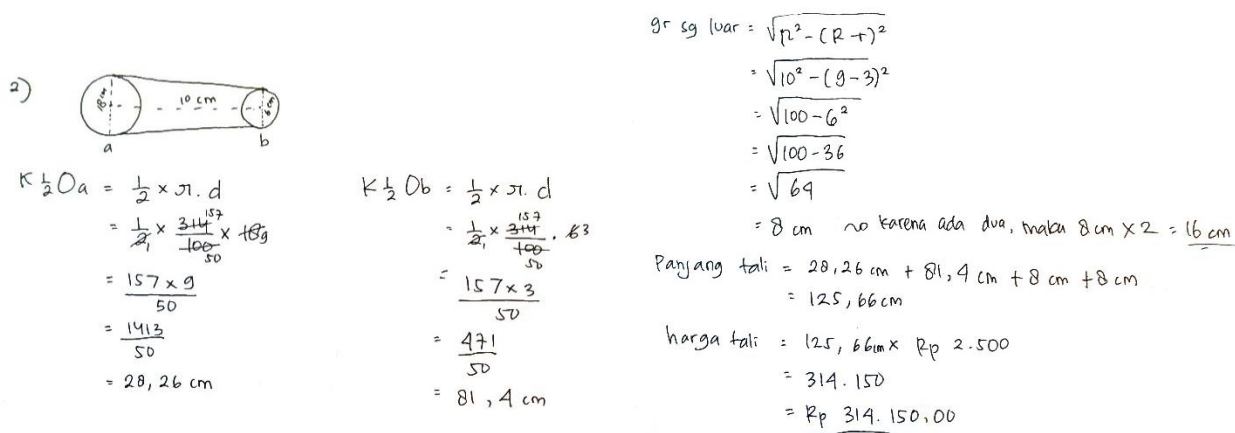 2)
18 cm
10 cm
6 cm
a
b
K ½ Oa = ½ × π . d
= ½ × 314/100 × 18 9
157
1
50
= 157 × 9 / 50
= 1413 / 50
= 28,26 cm
K ½ Ob = ½ × π . d
= ½ × 314/100 . 6 3
157
1
50
= 157 × 3 / 50
= 471 / 50
= 81,4 cm
gr sg luar = √p² - (R - r)²
= √10² - (9 - 3)²
= √100 - 6²
= √100 - 36
= √64
= 8 cm ~> karena ada dua, maka 8 cm × 2 = 16 cm
Panjang tali = 28,26 cm + 81,4 cm + 8 cm + 8 cm
= 125,66 cm
harga tali = 125,66 cm × Rp 2.500
= 314.150
= Rp 314.150,00